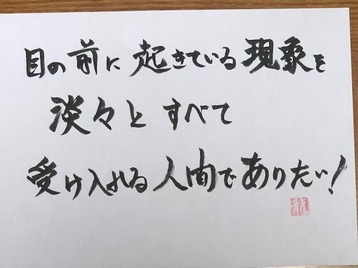 目の前に起きている現象を
淡々とすべて
受け入れる人間でありたい!